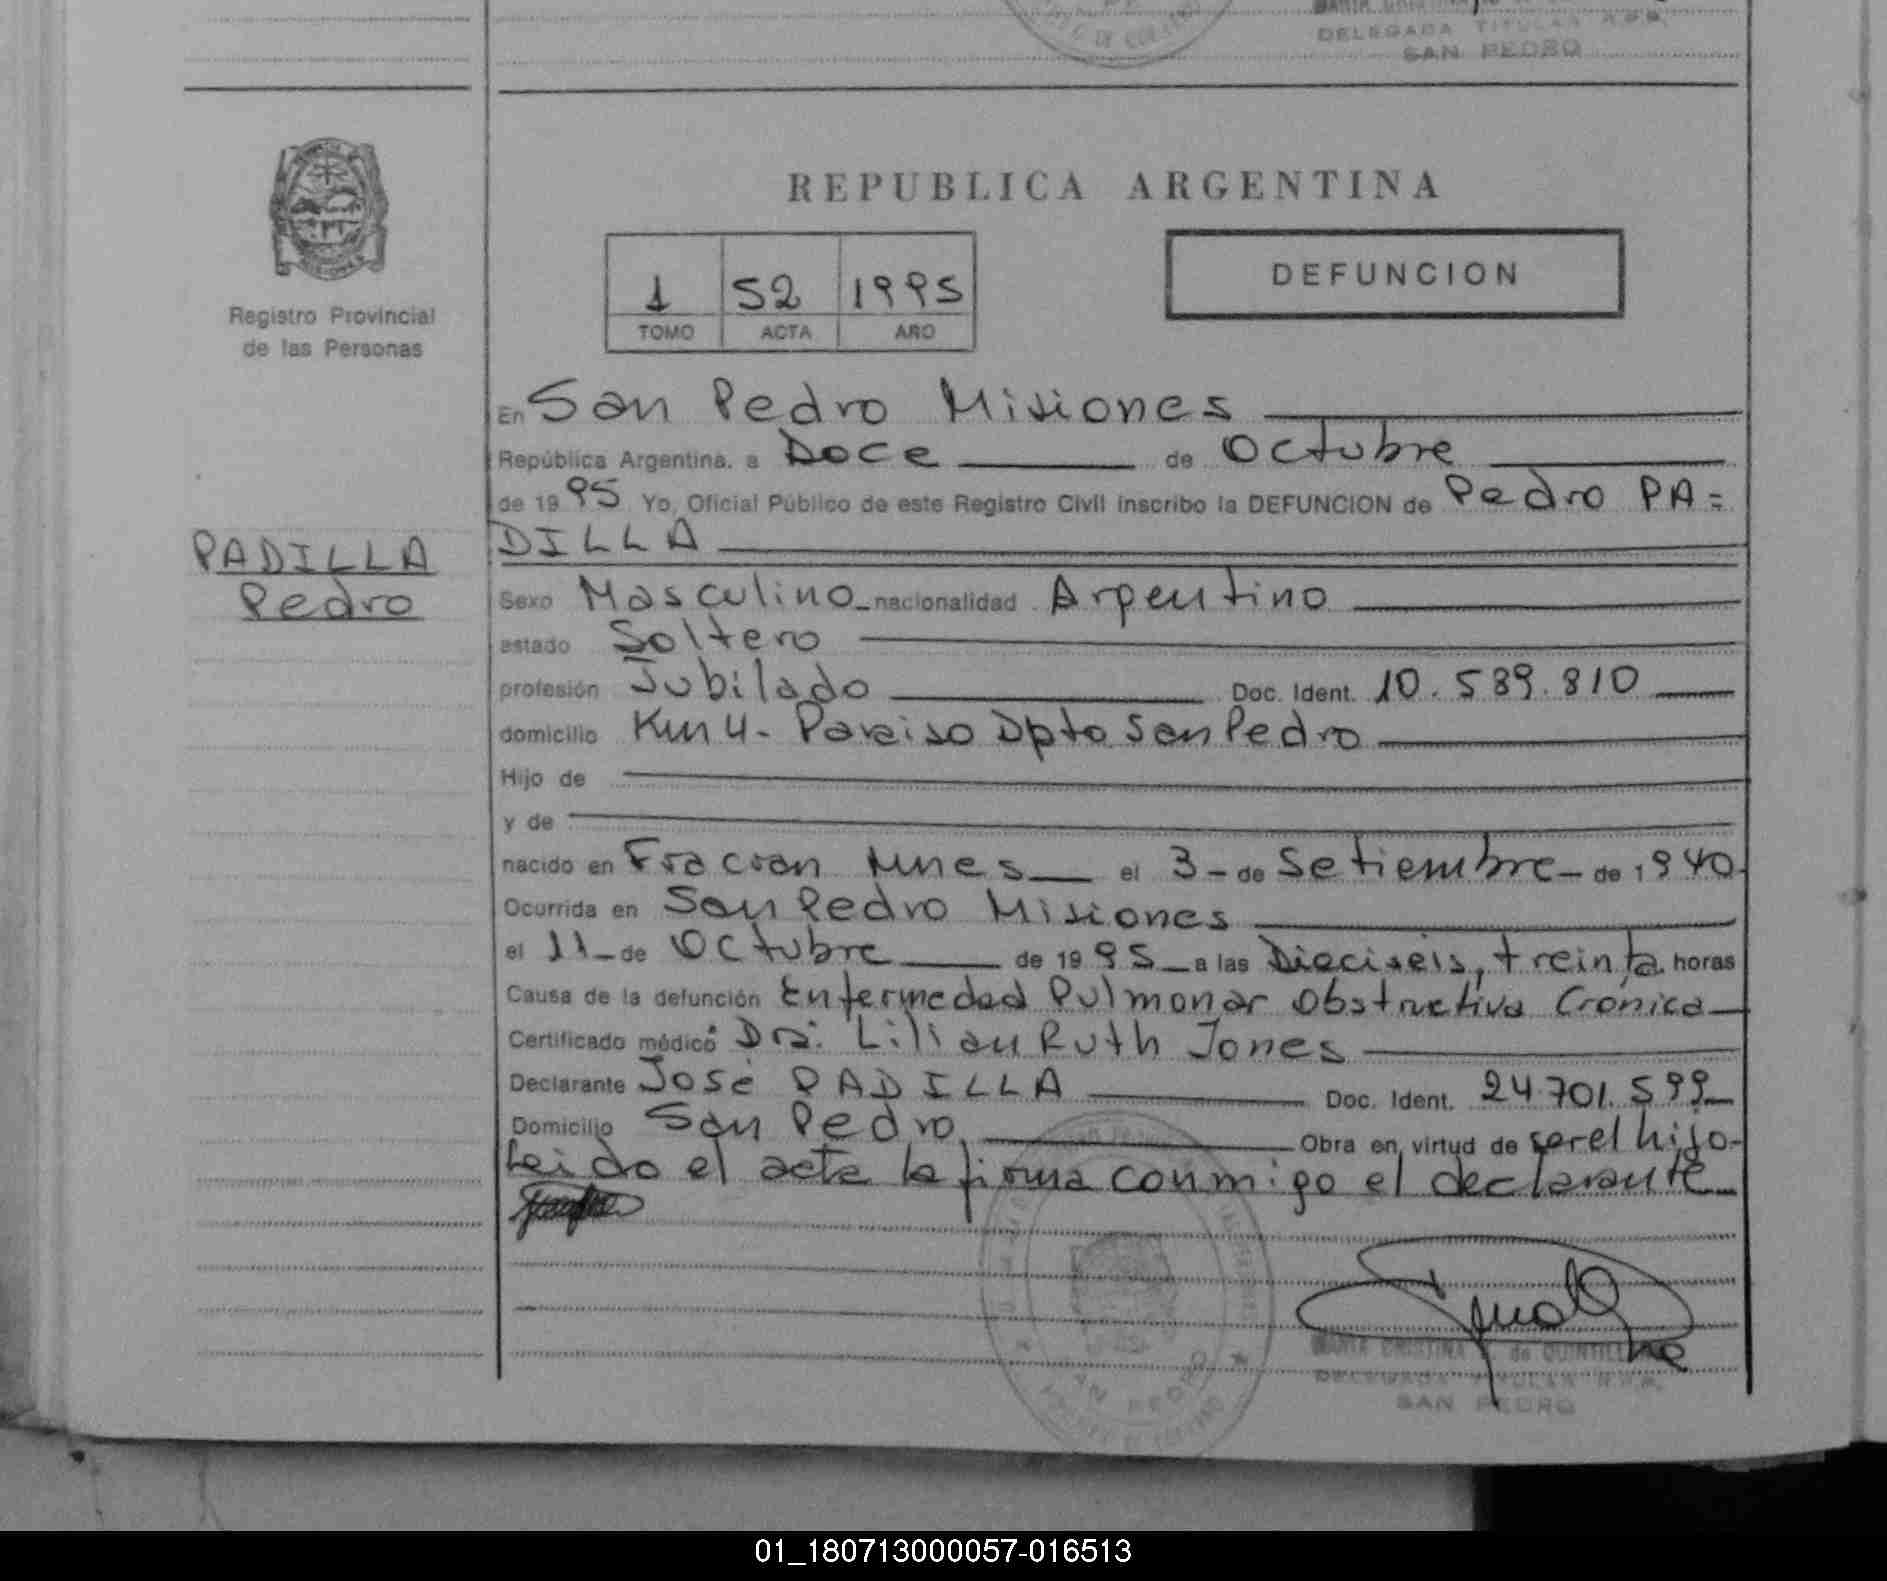 DELEGADA TITULAR R.P.P.
SAN PEDRO
REPUBLICA ARGENTINA
1 52 1995
TOMO ACTA AÑO
DEFUNCION
Registro Provincial
de las Personas
PADILLA
Pedro
En San Pedro Misiones
República Argentina, a Doce de Octubre
de 1995 Yo, Oficial Público de este Registro Civil inscribo la DEFUNCION de Pedro PA=
DILLA
Sexo Masculino nacionalidad Argentino
estado Soltero
profesión Jubilado Doc. Ident. 10.589.810
domicilio Km 4- Paraiso Dpto San Pedro
Hijo de
y de
nacido en Fracran Mnes el 3- de Setiembre- de 1940-
Ocurrida en San Pedro Misiones
el 11- de Octubre de 1995 a las Dieciseis, treinta horas
Causa de la defunción Enfermedad Pulmonar Obstructiva Crónica
Certificado médico Dra. Lilian Ruth Jones
Declarante José PADILLA Doc. Ident. 24.701.599
Domicilio San Pedro Obra en virtud de ser el hijo-
Leido el acta la firma conmigo el declarante
MARIA CRISTINA de
DELEGADA TITULAR R.P.P.
SAN PEDRO
01_180713000057-016513